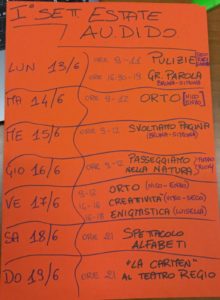 I° SETT. ESTATE
AU.DI.DO
LUN 13/6 ORE 9-11 PULIZIE
ORE 16.30-18 GR. PAROLA
MA 14/6 ORE 9-12 ORTO
ME 15/6 ORE 9-12 SVOLTIAMO PAGINA
GIO 16/6 9-12 PASSEGGIAMO
NELLA NATURA
VE 17/6 9-12 ORTO
CREATIVITÀ
16-18 ENIGMISTICA
SA 18/6 ORE 21 SPETTACOLO
ALFABETI
DO 19/6 ORE 21 "LA CARMEN"
AL TEATRO REGIO